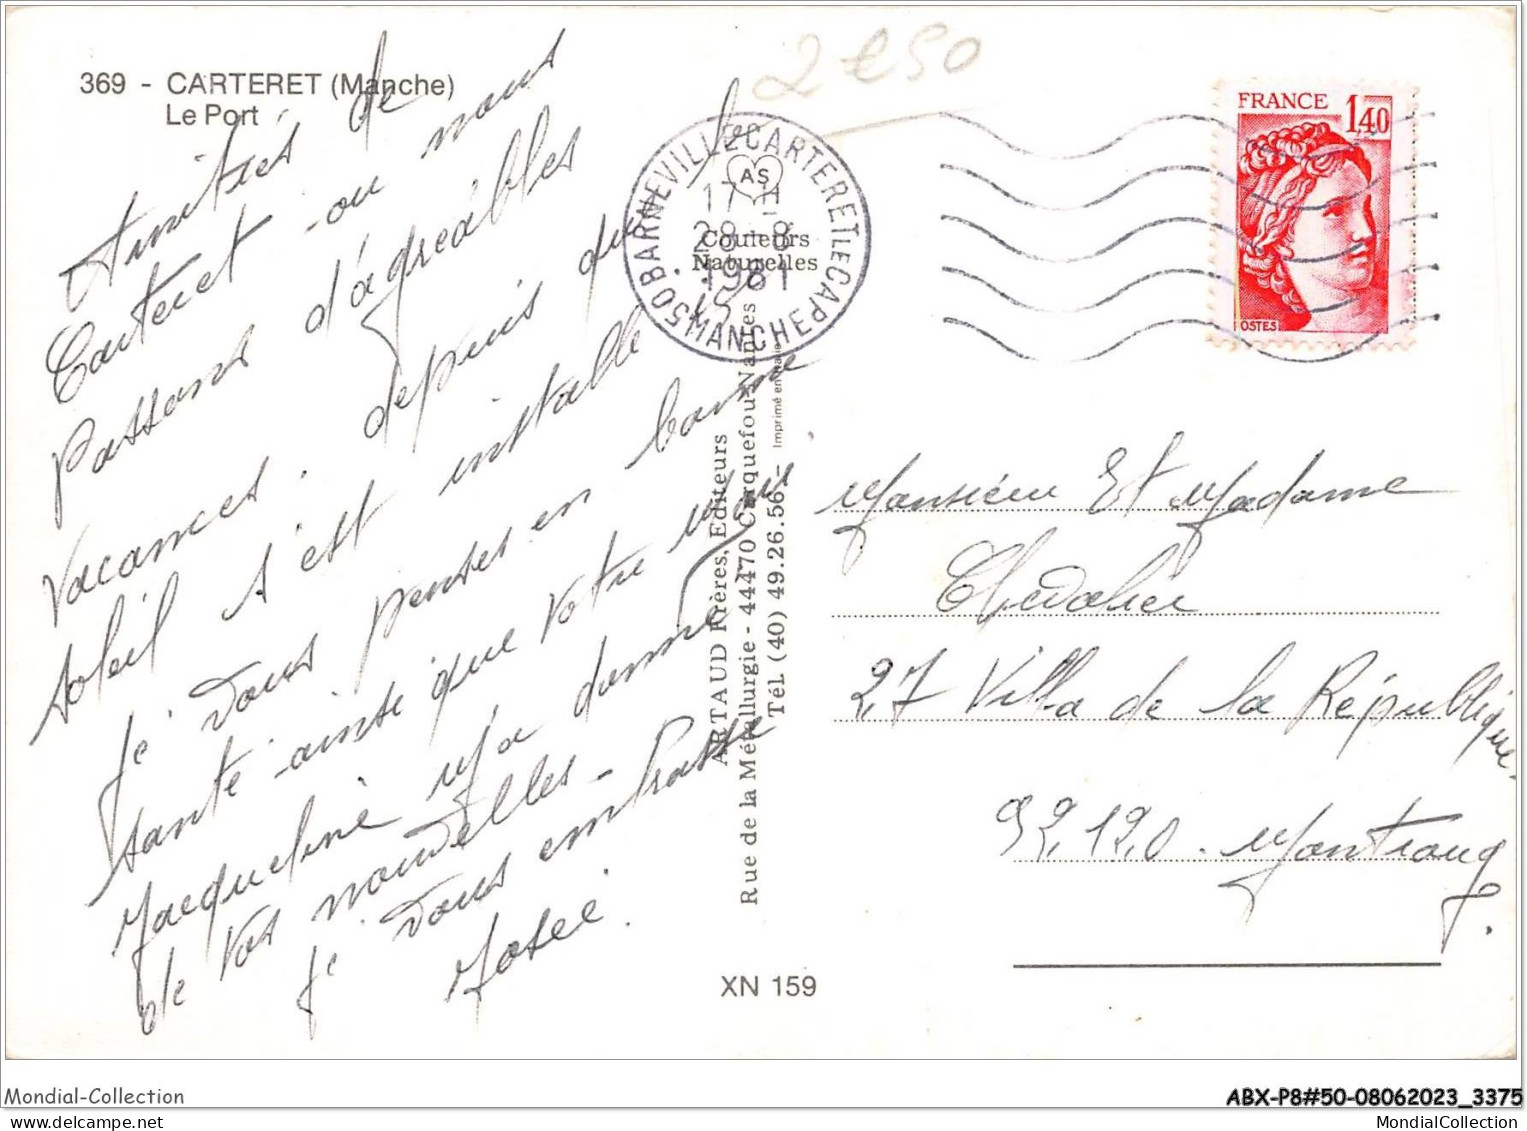 2€50
369 - CARTERET (Manche)
Le Port
Amitiés de
Carteret ou nous
passons d'agréables
vacances. depuis que le
soleil s'est installé
Je vous penses en bonne
santé ainsi que votre mari
Jacqueline m'a donné
de vos nouvelles -
Je vous embrasse
Josée.
50 BARNEVILLE CARTERET LE CAP MANCHE
17 H
28 - 8
1981
AS
Couleurs
Naturelles
ARTAUD Frères, Editeurs
Rue de la Métallurgie - 44470 Carquefou-Nantes
Tél (40) 49.26.56 - Imprimé en Italie
XN 159
FRANCE 1,40
POSTES
Monsieur Et Madame
Chevalier
27 Villa de la République
92.120. Montroug.
Mondial-Collection
ABX-P8#50-08062023_3375
mondial-collection.com
MondialCollection